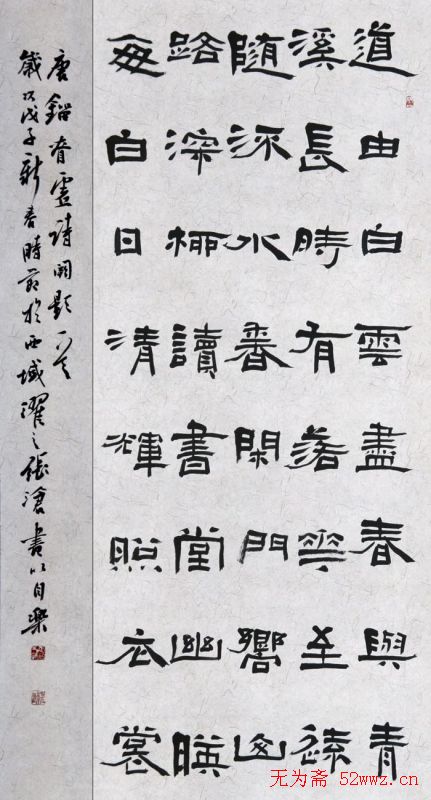 道由白雲盡春與青
溪長時有落花至遠
隨流水香閑門嚮山
路深柳讀書堂幽暎
每白日清輝照衣裳
唐劉眘虛詩闕題一首
歲次戊子新春時於西域濯之張滄書以自樂
无为斋 52wwz.cn